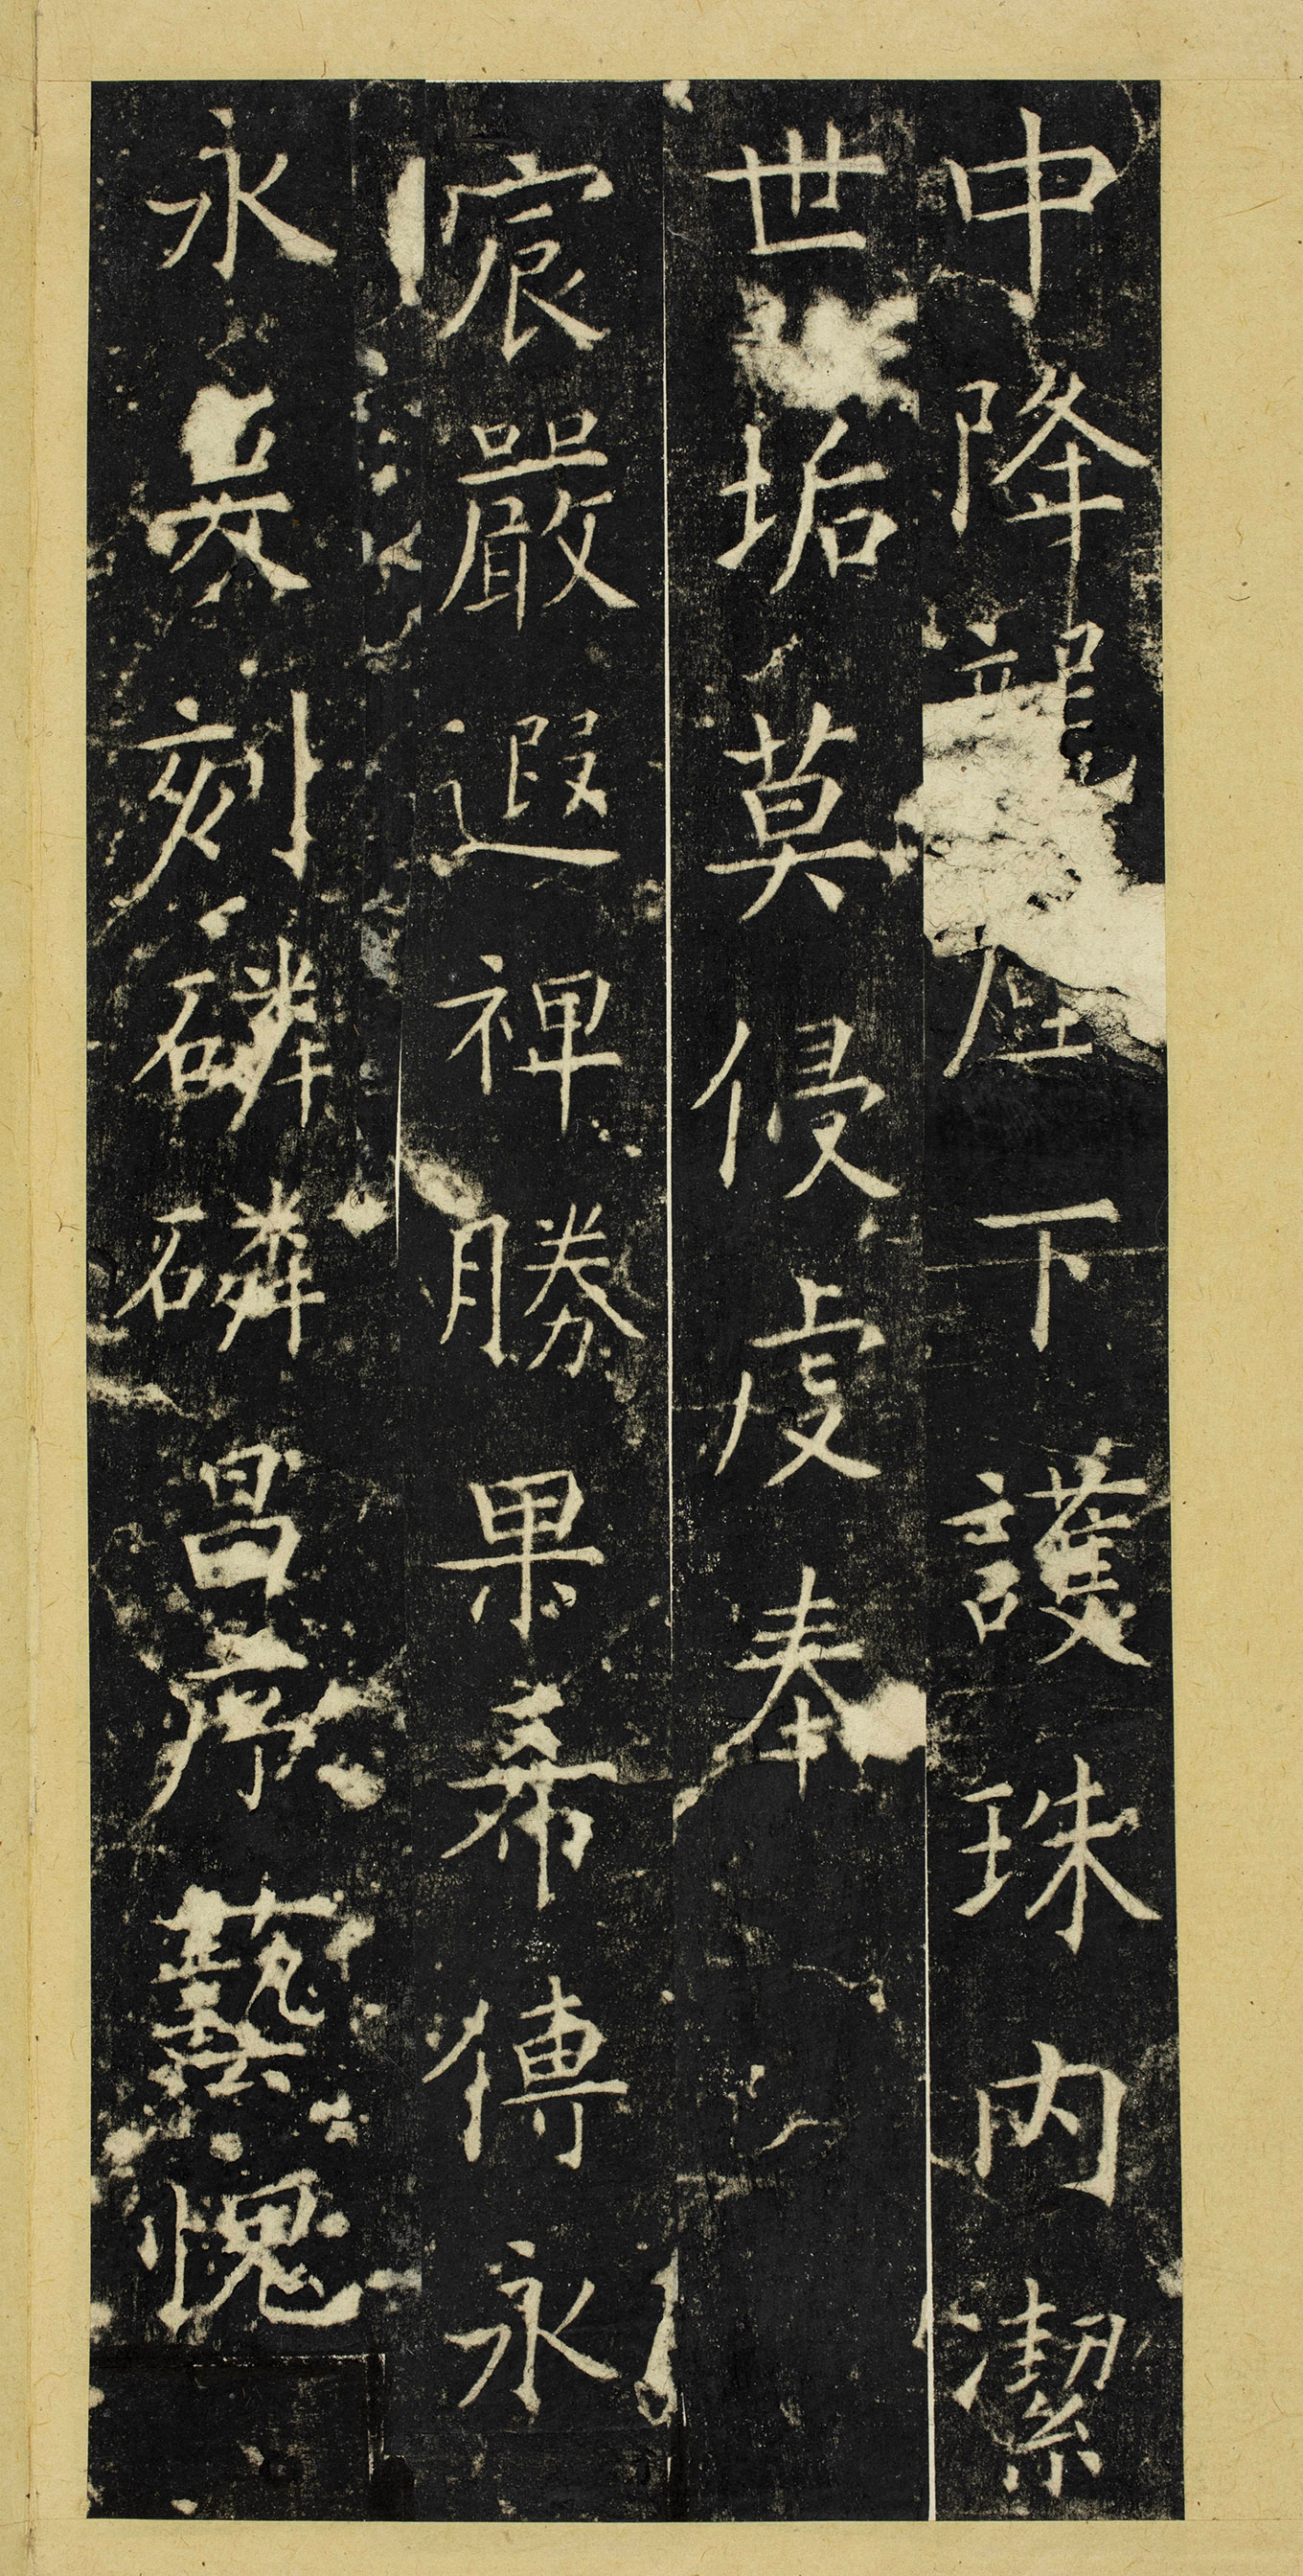 中降龍㘴下護珠内潔
世垢莫侵虔奉
宸嚴遐禆勝果希傳永
永吳刻磷磷昌序藝愧